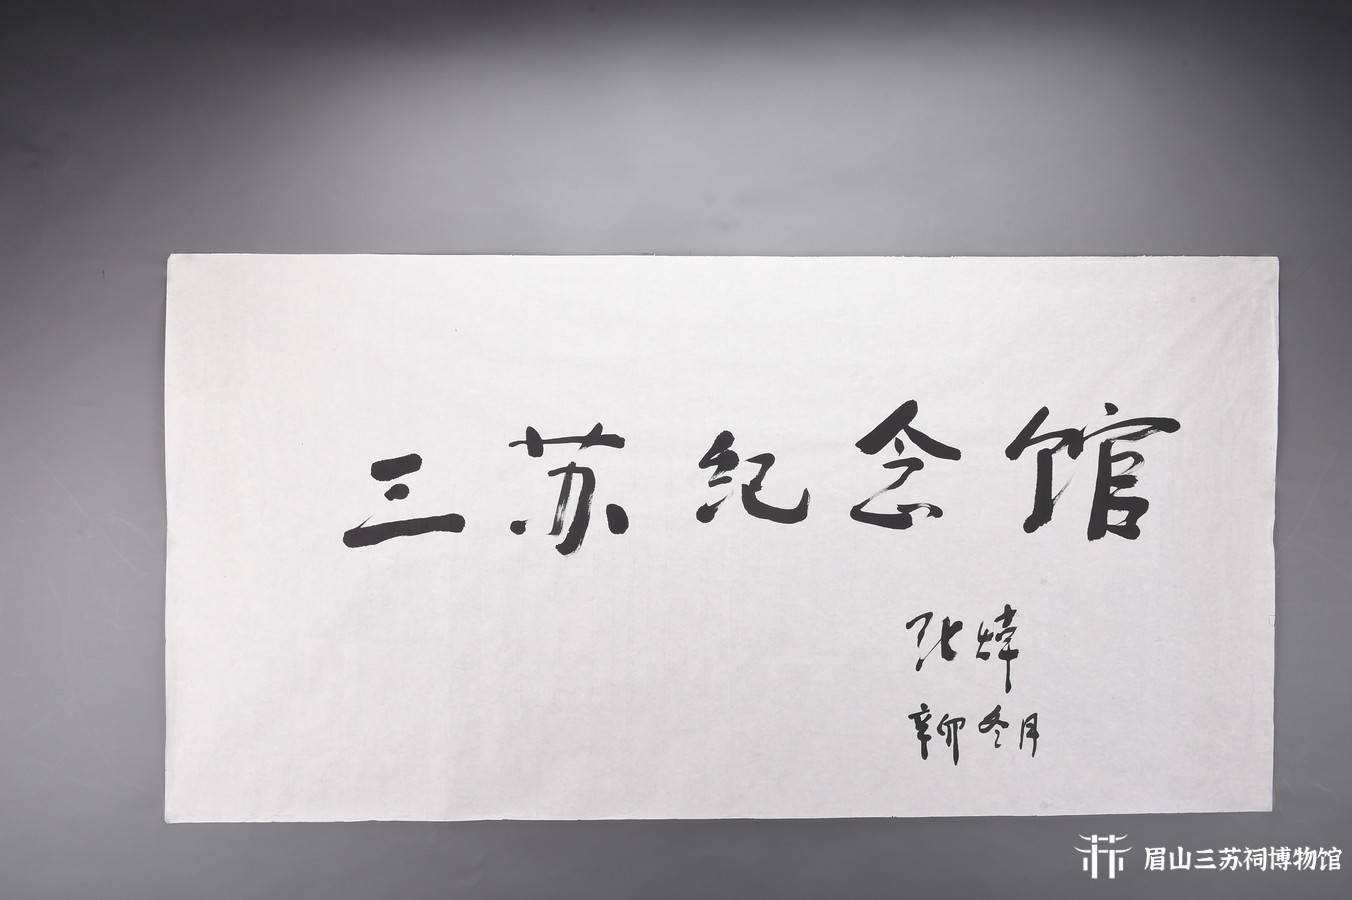 三苏纪念馆
张炜
辛卯冬月
眉山三苏祠博物馆